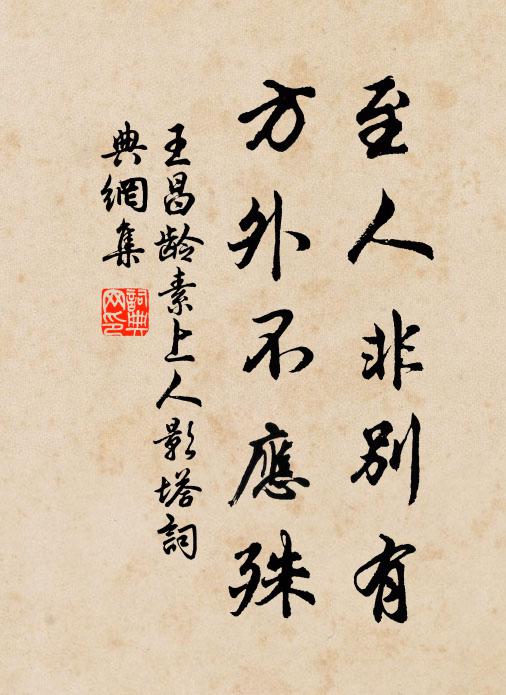 至人非别有
方外不應殊
王昌龄素上人影塔詞
典網集
詞典
网印